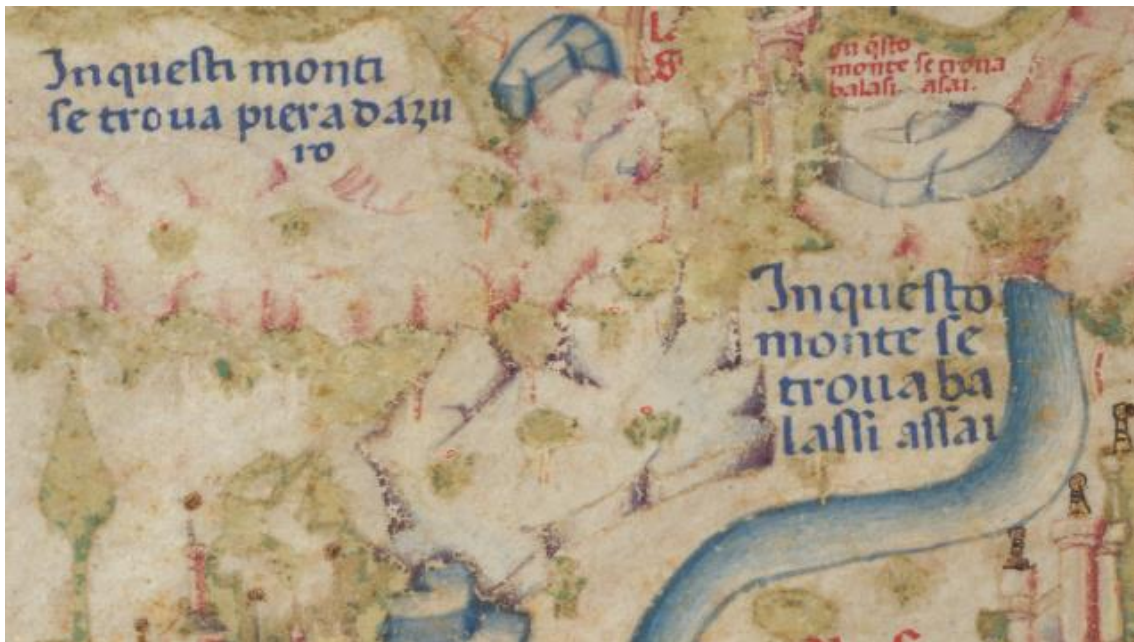 In questi monti
se trova piera dazu
ro
L
S
on q̄sto
monte se trova
balasi asai.
In questo
monte se
trova ba
lassi assai